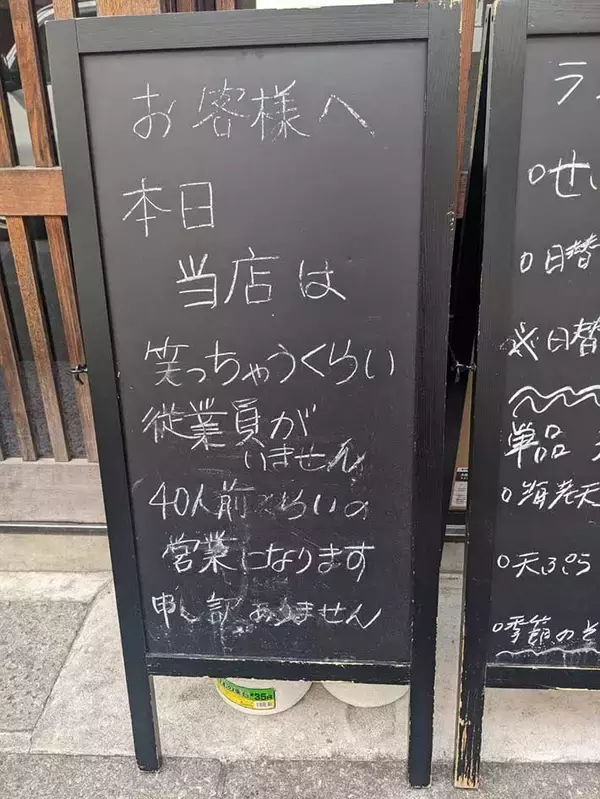 お客様へ
本日
当店は
笑っちゃうくらい
従業員が
いません
40人前くらいの
営業になります
申し訳ありません
ラ
○せい
○日替
※日替
単品
○海老天
○天ぷら
○季節の
35円